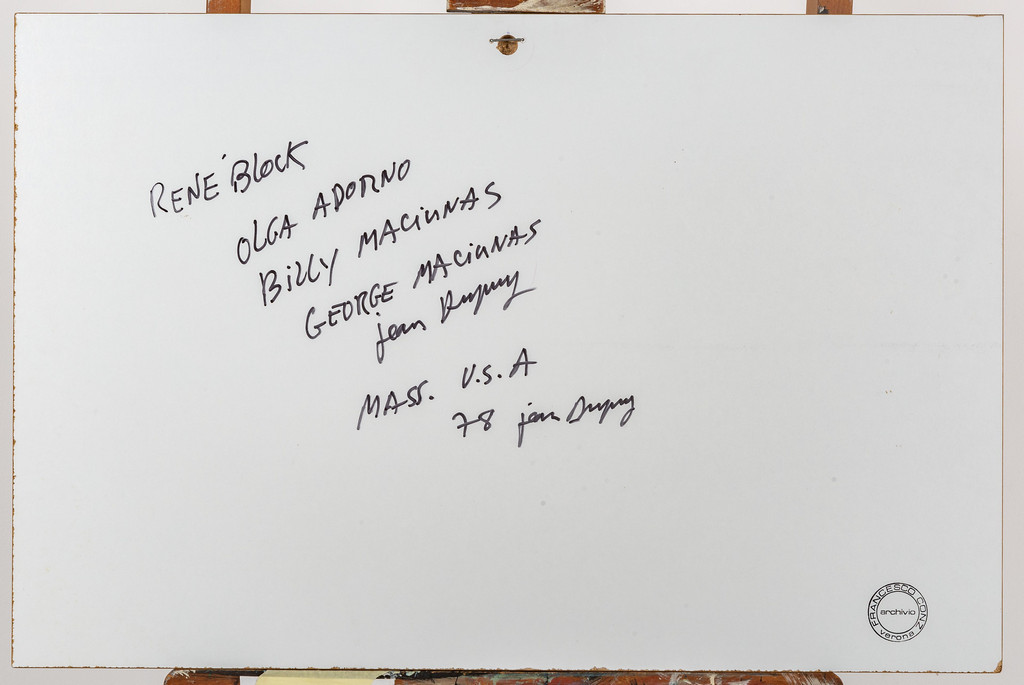 RENÉ BLOCK
OLGA ADORNO
BiLLY MACiUNAS
GEORGE MACiUNAS
jean Dupuy
MASS. U.S.A
78 jean Dupuy
FRANCESCO CONZ
archivio
verona